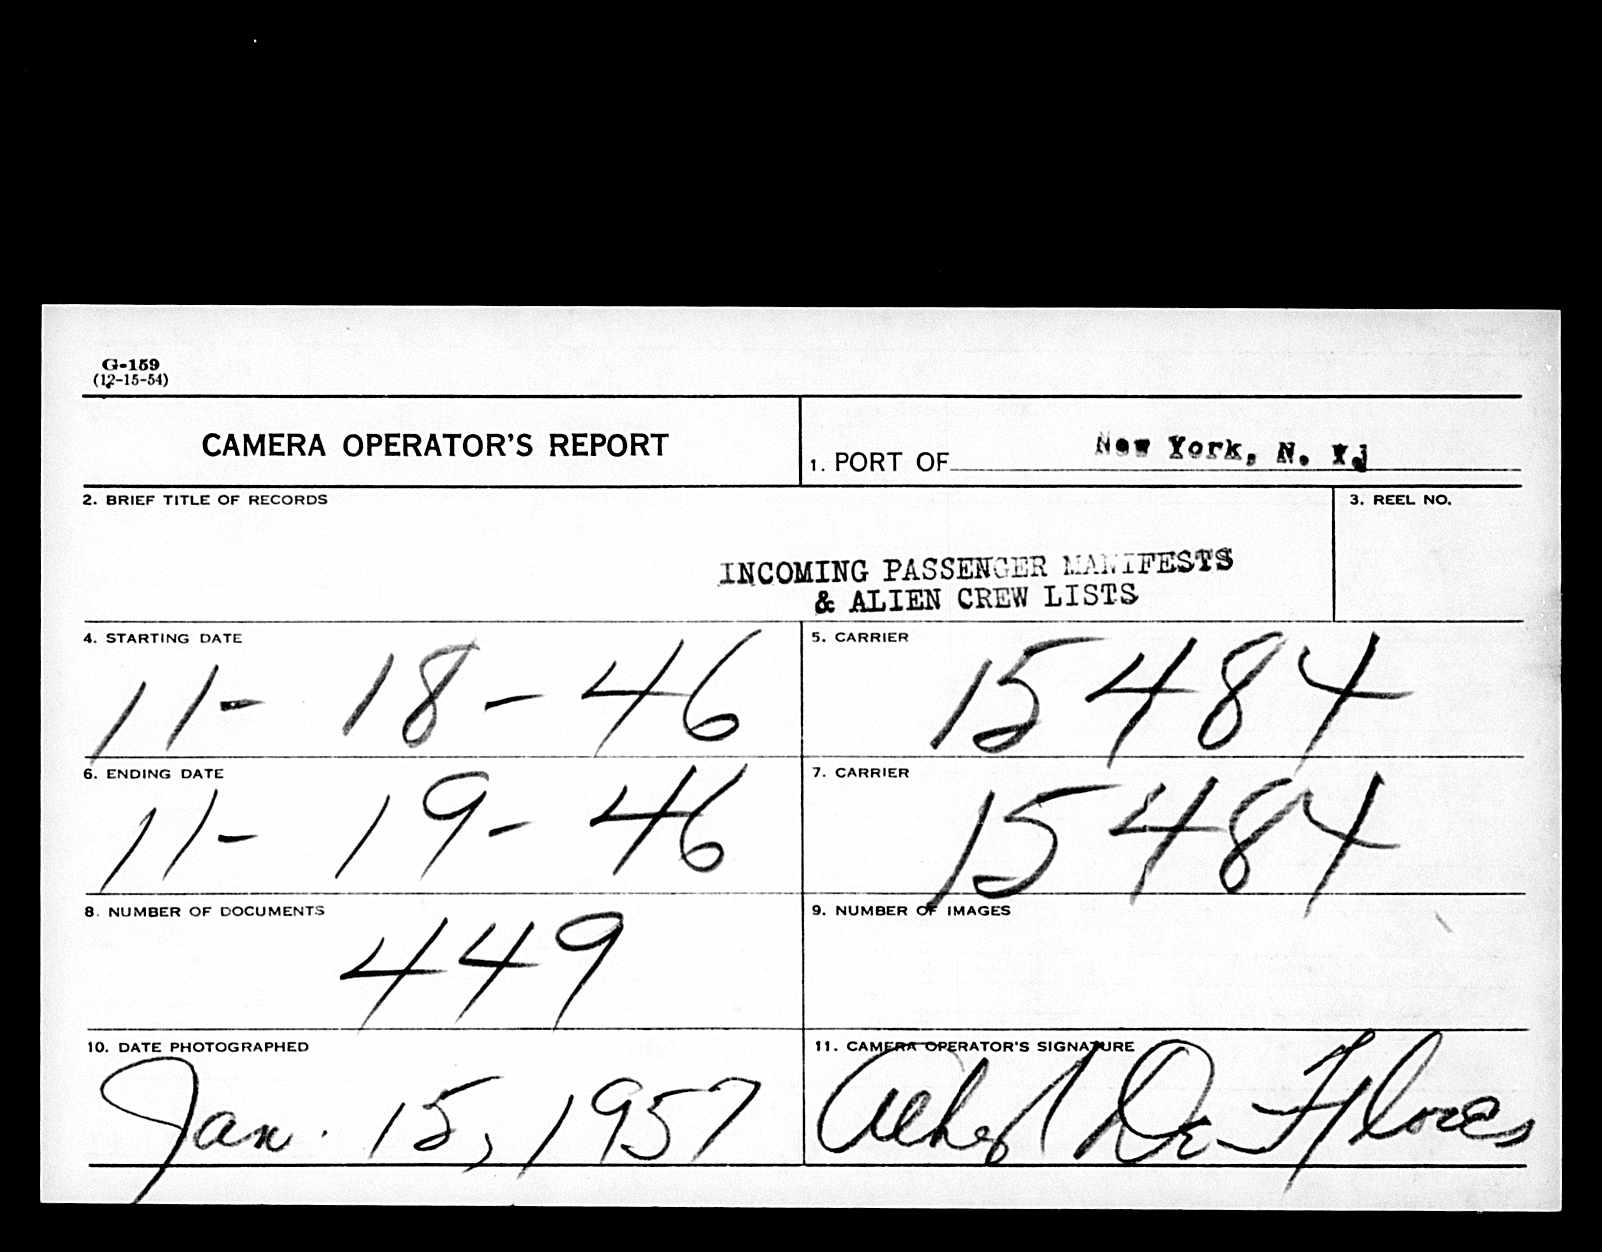 G-159
(12-15-54)
CAMERA OPERATOR'S REPORT
1. PORT OF New York, N. Y.
2. BRIEF TITLE OF RECORDS
3. REEL NO.
INCOMING PASSENGER MANIFESTS
& ALIEN CREW LISTS
4. STARTING DATE
11-18-46
5. CARRIER
15484
6. ENDING DATE
11-19-46
7. CARRIER
15484
8. NUMBER OF DOCUMENTS
449
9. NUMBER OF IMAGES
10. DATE PHOTOGRAPHED
Jan. 15, 1957
11. CAMERA OPERATOR'S SIGNATURE
De Flores